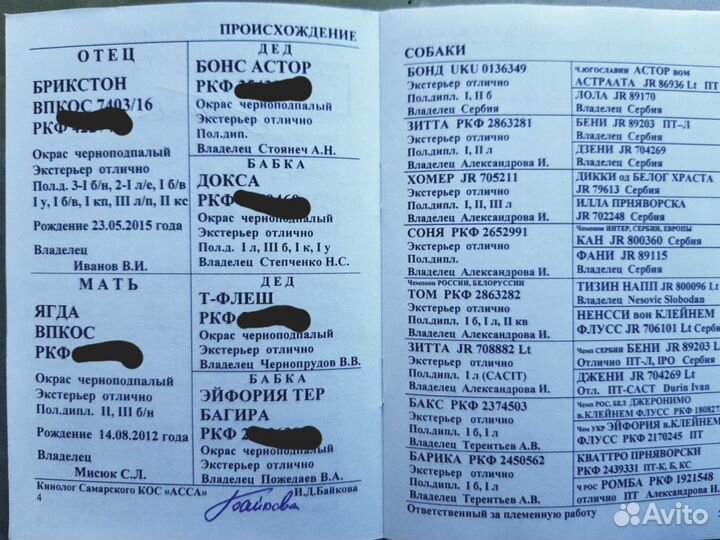 ПРОИСХОЖДЕНИЕ
ОТЕЦ
БРИКСТОН
ВПКОС 7403/16
РКФ
Окрас чернопод­палый
Экстерьер отлично
Пол.д. 3-I б/н, 2-I л/е, I б/в
I у, I б/в, I кп, III л/п, II кс
Рождение 23.05.2015 года
Владелец
Иванов В.И.
МАТЬ
ЯГДА
ВПКОС
РКФ
Окрас чернопод­палый
Экстерьер отлично
Пол.дипл. II, III б/н
Рождение 14.08.2012 года
Владелец
Мисюк С.Л.
ДЕД
БОНС АСТОР
РКФ
Окрас чернопод­палый
Экстерьер отлично
Пол.дип.
Владелец Стоянеч А.Н.
БАБКА
ДОКСА
РКФ
Окрас чернопод­палый
Экстерьер отлично
Пол.д. I л, III б, I к, I у
Владелец Степченко Н.С.
ДЕД
Т-ФЛЕШ
РКФ
Окрас чернопод­палый
Экстерьер отлично
Владелец Чернопрудов В.В.
БАБКА
ЭЙФОРИЯ ТЕР
БАГИРА
РКФ
Окрас чернопод­палый
Экстерьер отлично
Владелец Пожедаев В.А.
Кинолог Самарского КОС «АССА»
И.Д.Байкова
4
Байкова
СОБАКИ
БОНД UKU 0136349
Экстерьер отлично
Пол.дипл. I, II б
Владелец Сербия
ЗИТТА РКФ 2863281
Экстерьер отлично
Пол.дипл. I, II л
Владелец Александрова И.
ХОМЕР JR 705211
Экстерьер отлично
Пол.дипл. I, II, III л
Владелец Александрова И.
СОНЯ РКФ 2652991
Экстерьер отлично
Пол.дипл.
Владелец Александрова И.
Чемпион РОССИИ, БЕЛОРУССИИ
ТОМ РКФ 2863282
Экстерьер отлично
Пол.дипл. I б, I л, II кв
Владелец Александрова И.
ЗИТТА JR 708882 Lt
Экстерьер отлично
Пол.дипл. I л (CACIT)
Владелец Александрова И.
БАКС РКФ 2374503
Экстерьер отлично
Пол.дипл. I б, I л
Владелец Терентьев А.В.
БАРИКА РКФ 2450562
Экстерьер отлично
Пол.дипл. I б, I л
Владелец Терентьев А.В.
Ч.ЮГОСЛАВИИ АСТОР вом
АСТРААТА JR 86936 Lt ПТ
ЛОЛА JR 89170
Владелец Сербия
БЕНИ JR 89203 ПТ–Л
Владелец Сербия
ДЗЕНИ JR 704269
Владелец Сербия
ДИККИ од БЕЛОГ ХРАСТА
JR 79613 Сербия
ИЛЛА ПРНЯВОРСКА
JR 702248 Сербия
Чемпион ИНТЕР, СЕРБИИ, ЕВРОПЫ
КАН JR 800360 Сербия
ФАНИ JR 89115
Владелец Сербия
ТИЗИН НАПП JR 800096 Lt
Владелец Nesovic Slobodan
НЕНССИ вон КЛЕЙНЕМ
ФЛУСС JR 706101 Lt Серб
Чемп СЕРБИИ БЕНИ JR 89203 Lt
Отлично ПТ-Л, IPO Сербия
ДЖЕНИ JR 704269 Lt
Отл. ПТ-CACT Durin Ivan
Чемп РОС, БЕЛ ДЖЕРОНИМО
в.КЛЕЙНЕМ ФЛУСС РКФ 180827
Чем УКР ЭЙФОРИЯ в.КЛЕЙНЕМ
ФЛУСС РКФ 2170245 ПТ
КВАТТРО ПРНЯВОРСКИ
РКФ 2439331 ПТ-К, Б, КС
Ч РОС РОМБА РКФ 1921548
отлично ПТ Александрова И.
Ответственный за племенную работу
Avito